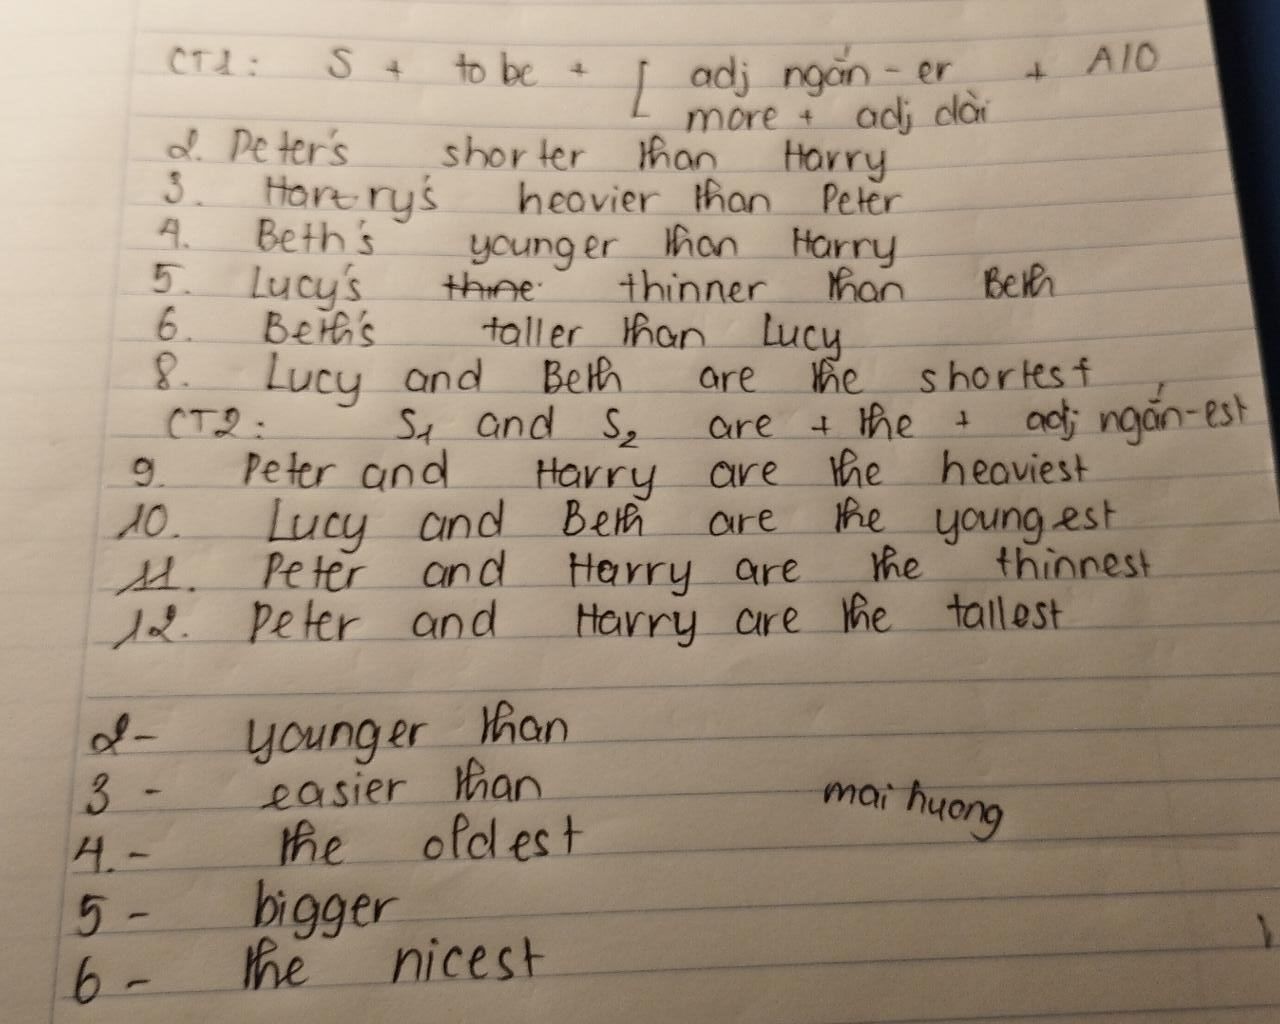 CT1: S + to be + [ adj ngắn - er + A/O
more + adj dài
2. Peter's shorter than Harry
3. Harry's heavier than Peter
4. Beth's younger than Harry
5. Lucy's thine thinner than Beth
6. Beth's taller than Lucy
8. Lucy and Beth are the shortest
CT2: S1 and S2 are + the + adj ngắn-est
9. Peter and Harry are the heaviest
10. Lucy and Beth are the youngest
11. Peter and Harry are the thinnest
12. Peter and Harry are the tallest
2- younger than
3 - easier than
mai huong
4.- the oldest
5 - bigger
6 - the nicest